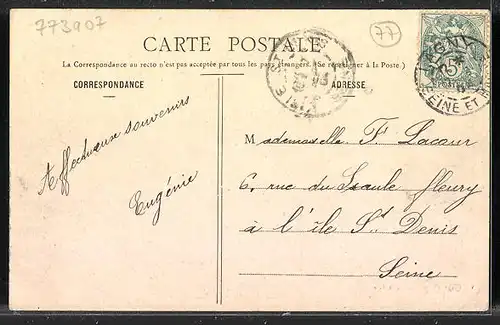 773907
77
CARTE POSTALE
La Correspondance au recto n'est pas acceptée par tous les pays étrangers. (Se renseigner à la Poste.)
CORRESPONDANCE
ADRESSE
Affectueux souvenirs
Eugénie
Mademoiselle F. Lacour
6, rue du Saule fleury
à l'île St Denis
Seine
5
AGNY
SEINE ET